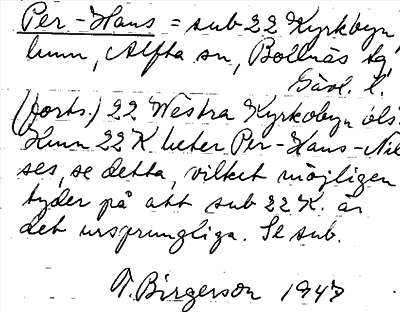 Per-Hans = sub 22 Kyrkbyn,
hmn, Alfta sn, Bollnäs tg
Gävl. l.
(forts.) 22 Westra Kyrkobyn öls.
Hmn 22 K. heter Per-Hans-Nil
ses, se detta, vilket möjligen
tyder på att sub 22 K. är
det ursprungliga. Se sub.
T. Birgerson 1947